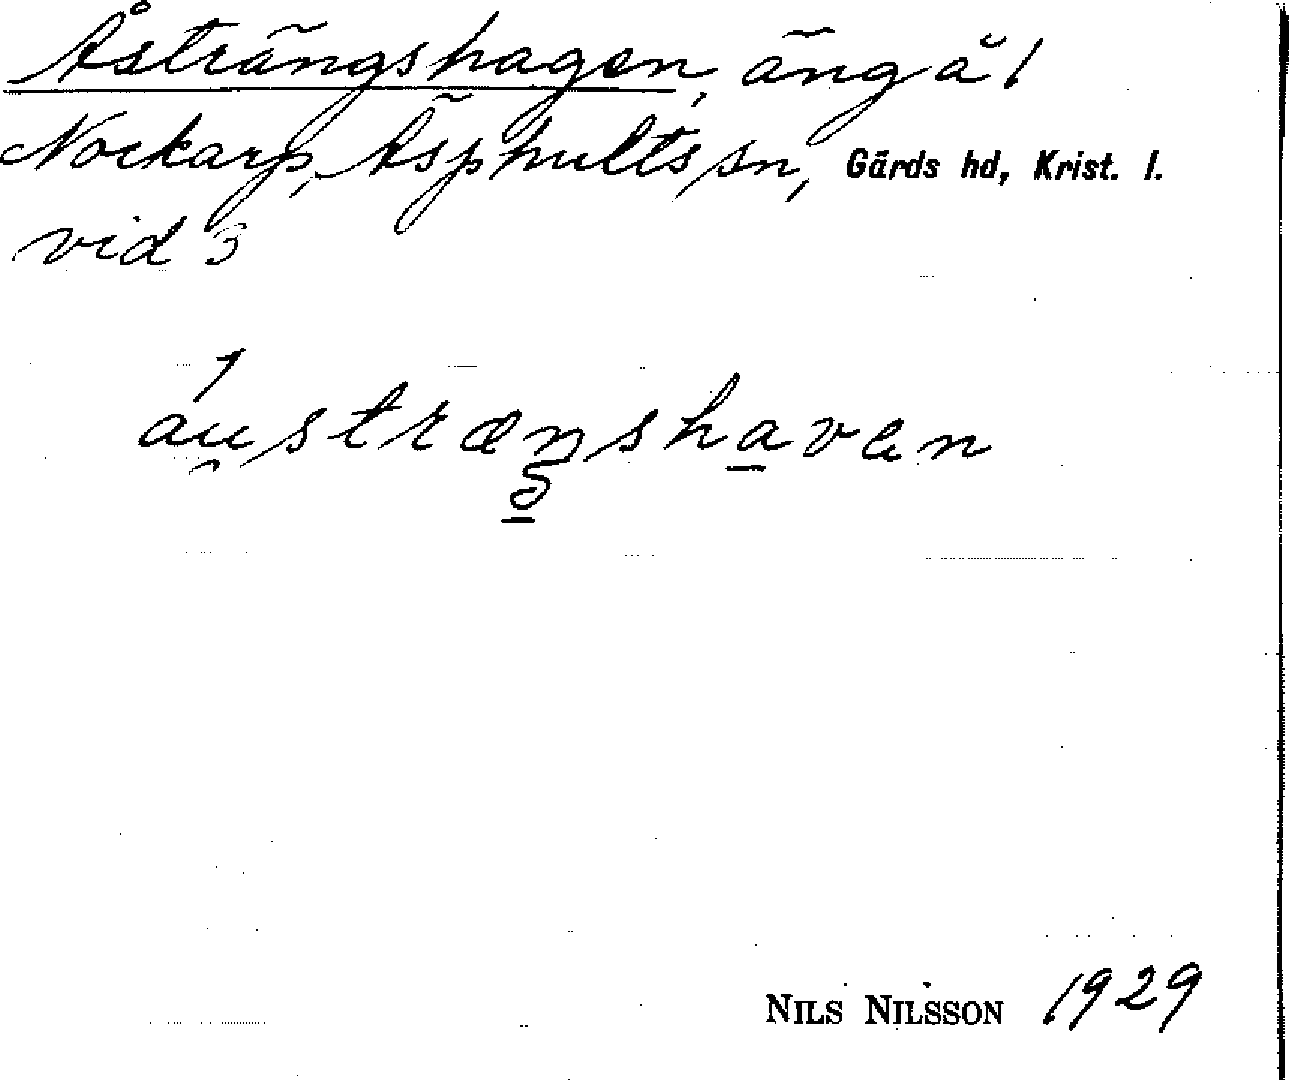 Åsträngshagen, äng å 1
Nockarp, Äsphults sn, Gärds hd, Krist. l.
vid 3
áu̯stræŋshaven
NILS NILSSON 1929